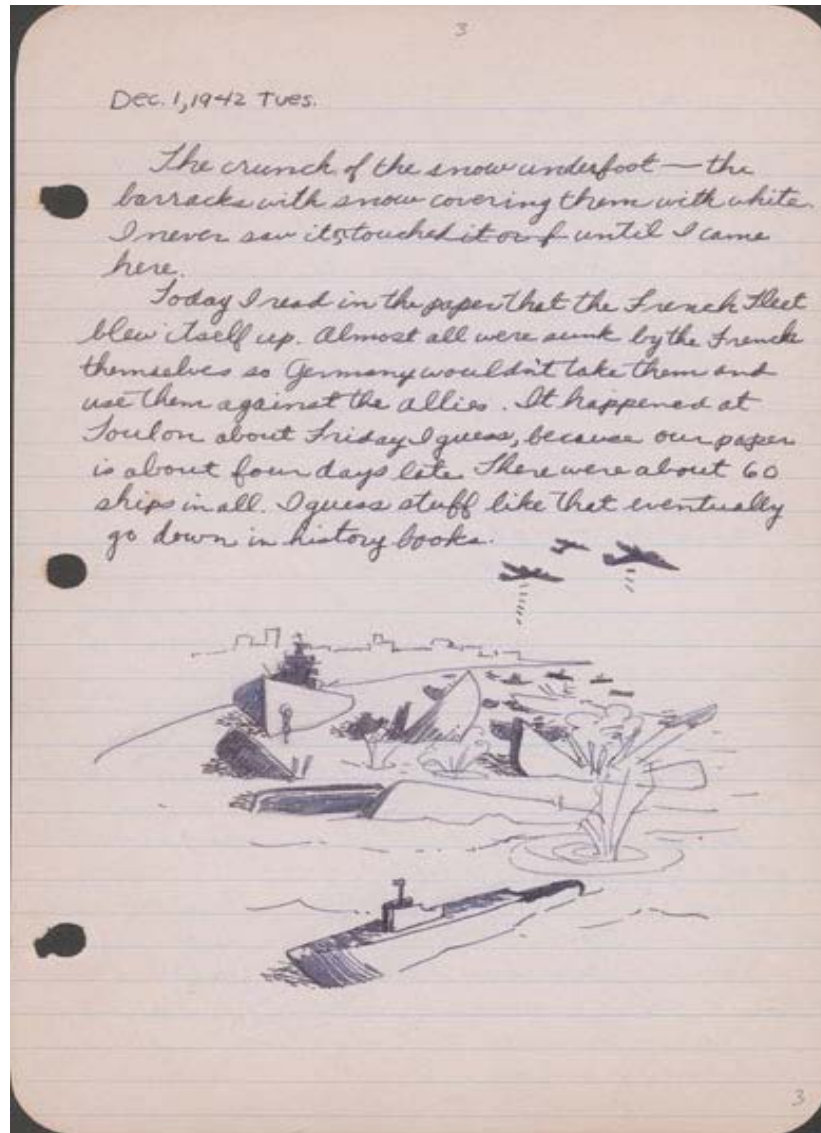 3
Dec. 1, 1942 Tues.
The crunch of the snow underfoot — the
barracks with snow covering them with white.
I never saw it touched it or f until I came
here.
Today I read in the paper that the French Fleet
blew itself up. Almost all were sunk by the French
themselves so Germany wouldn't take them and
use them against the allies. It happened at
Toulon about Friday I guess, because our paper
is about four days late. There were about 60
ships in all. I guess stuff like that eventually
go down in history books.
3